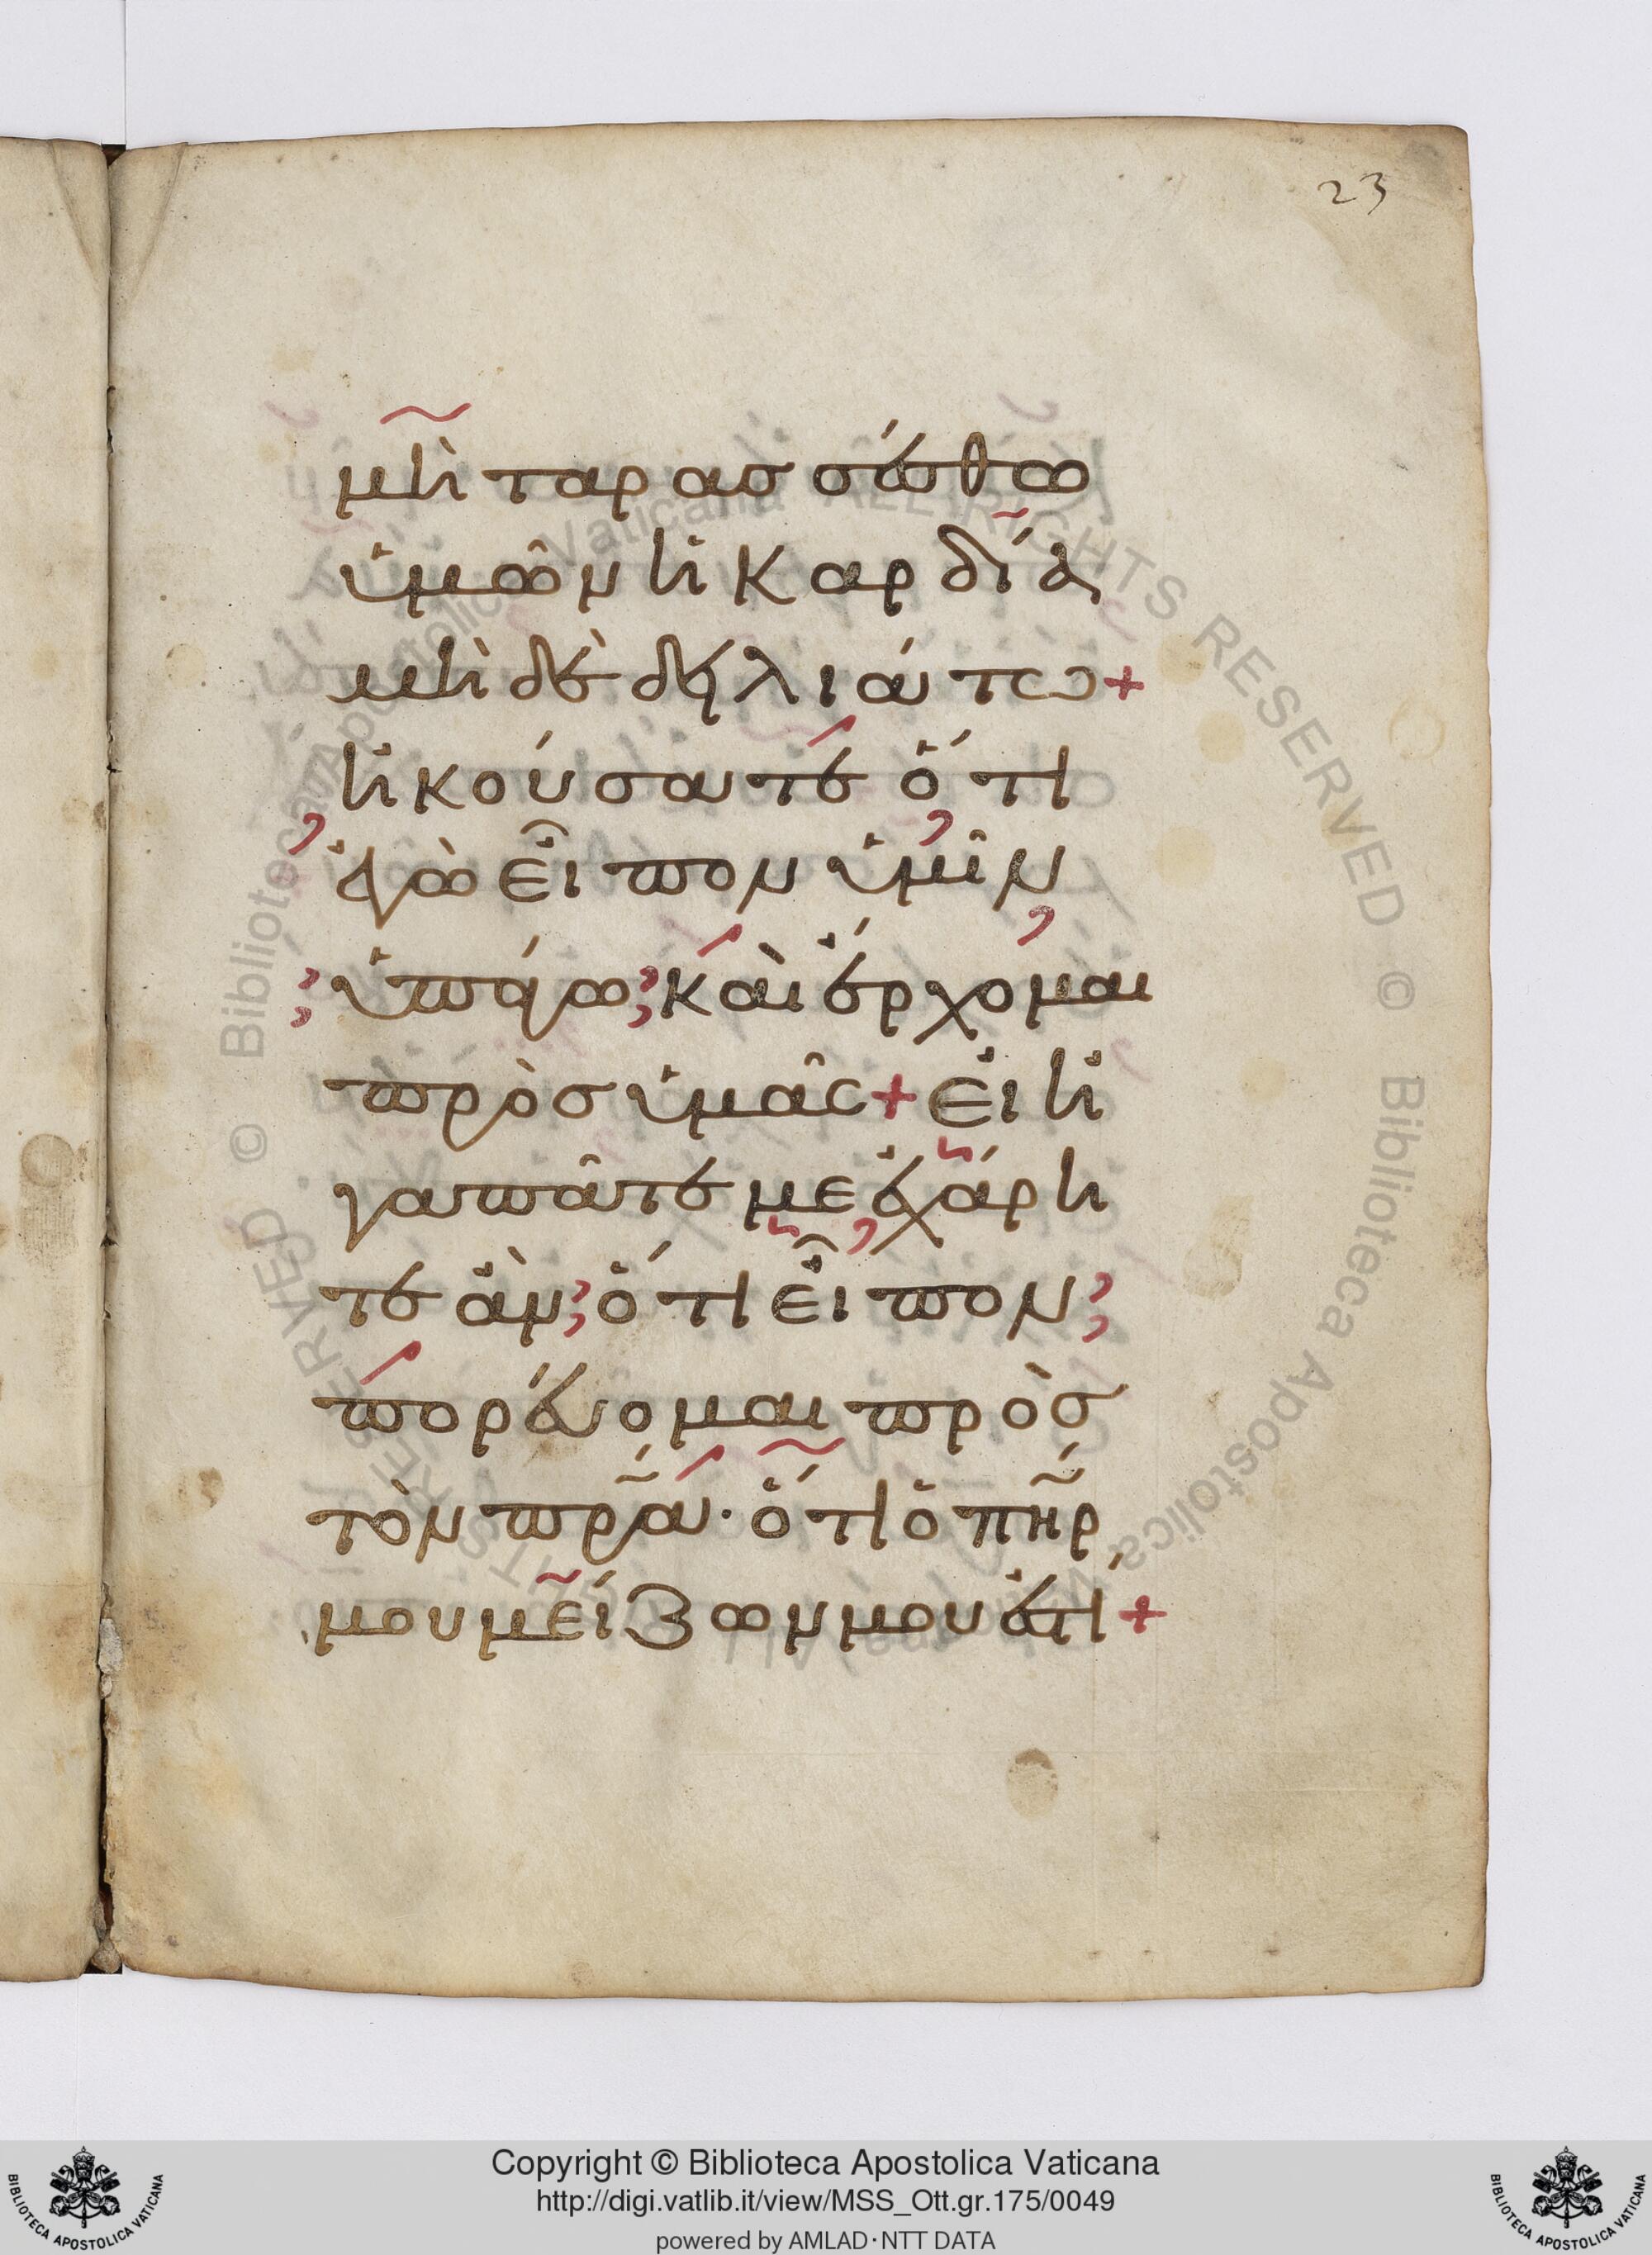 23
μὴ ταρασσέσθω
ὑμῶν ἡ καρδία
μὴ δὲ δηλιάτω+
ἠκούσατε ὅτι
ἐγὼ εἶπον ὑμῖν
ὑπάγω καὶ ἔρχομαι
πρὸσ ὑμᾶς+ εἰ ἠ
γαπᾶτε με ἐχάρη
τε ἂν ὅτι εἶπον
πορεύομαι πρὸσ
τὸν πρ̃α· ὅτι ὁ πη̃ρ
μου μείζων μου ἐστί+
© Biblioteca Apostolica Vaticana, ALL RIGHTS RESERVED
© Biblioteca Apostolica Vaticana, ALL RIGHTS RESERVED
BIBLIOTECA APOSTOLICA VATICANA
Copyright © Biblioteca Apostolica Vaticana
http://digi.vatlib.it/view/MSS_Ott.gr.175/0049
powered by AMLAD·NTT DATA
BIBLIOTECA APOSTOLICA VATICANA